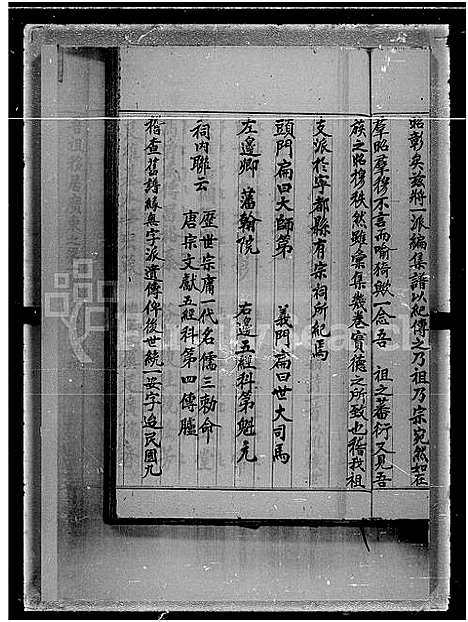 昭彰矣茲將一派編集譜以紀傳之乃祖乃宗宛然如在
羣昭羣穆不言而喻猗歟一念吾　祖之蕃衍又見吾
族之昭穆秩然雖彙集幾卷實德之所致也稽我祖
支派於寧都縣有宗祠所紀焉
頭門扁曰大師第　義門扁曰世大司馬
左邊卿　藩翰院　右邊五經科第魁元
祠內聯云　歷世宗庸一代名儒三勅命
唐宗文獻五經科第四傳臚
稽查舊譜緣無字派遺傳俾後世統一安字迨民國九